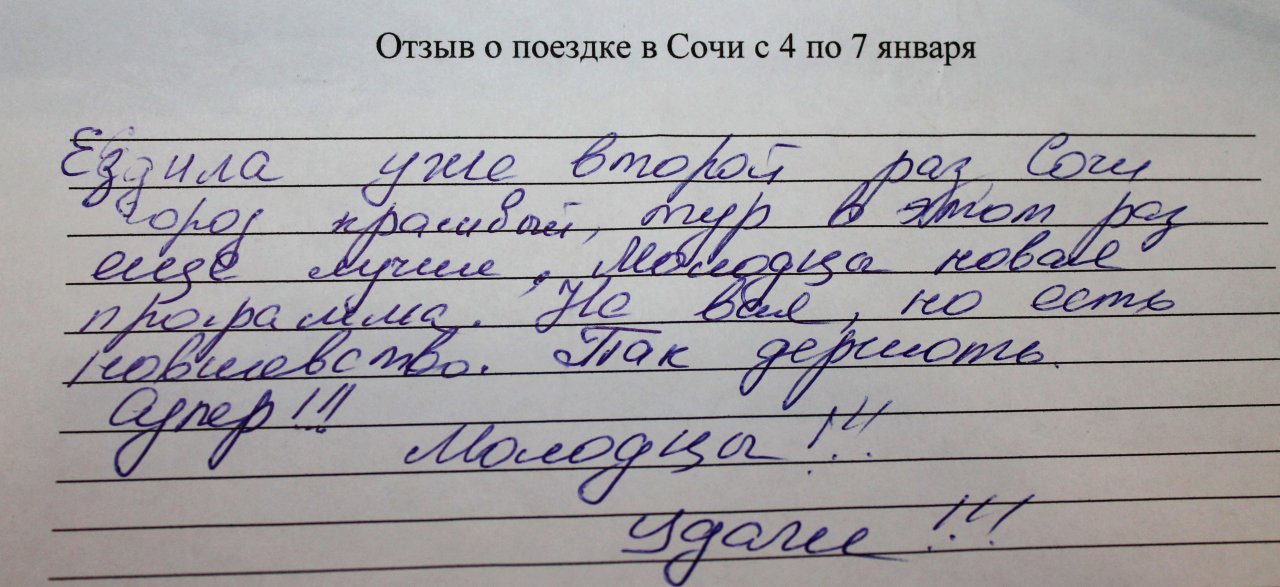 Отзыв о поездке в Сочи с 4 по 7 января
Ездила уже второй раз, Сочи
город красивый, тур в этот раз
еще лучше, Молодцы новая
программа. Не вся, но есть
новшевство. Так держать.
Супер!!!
Молодцы!!!
Удачи!!!